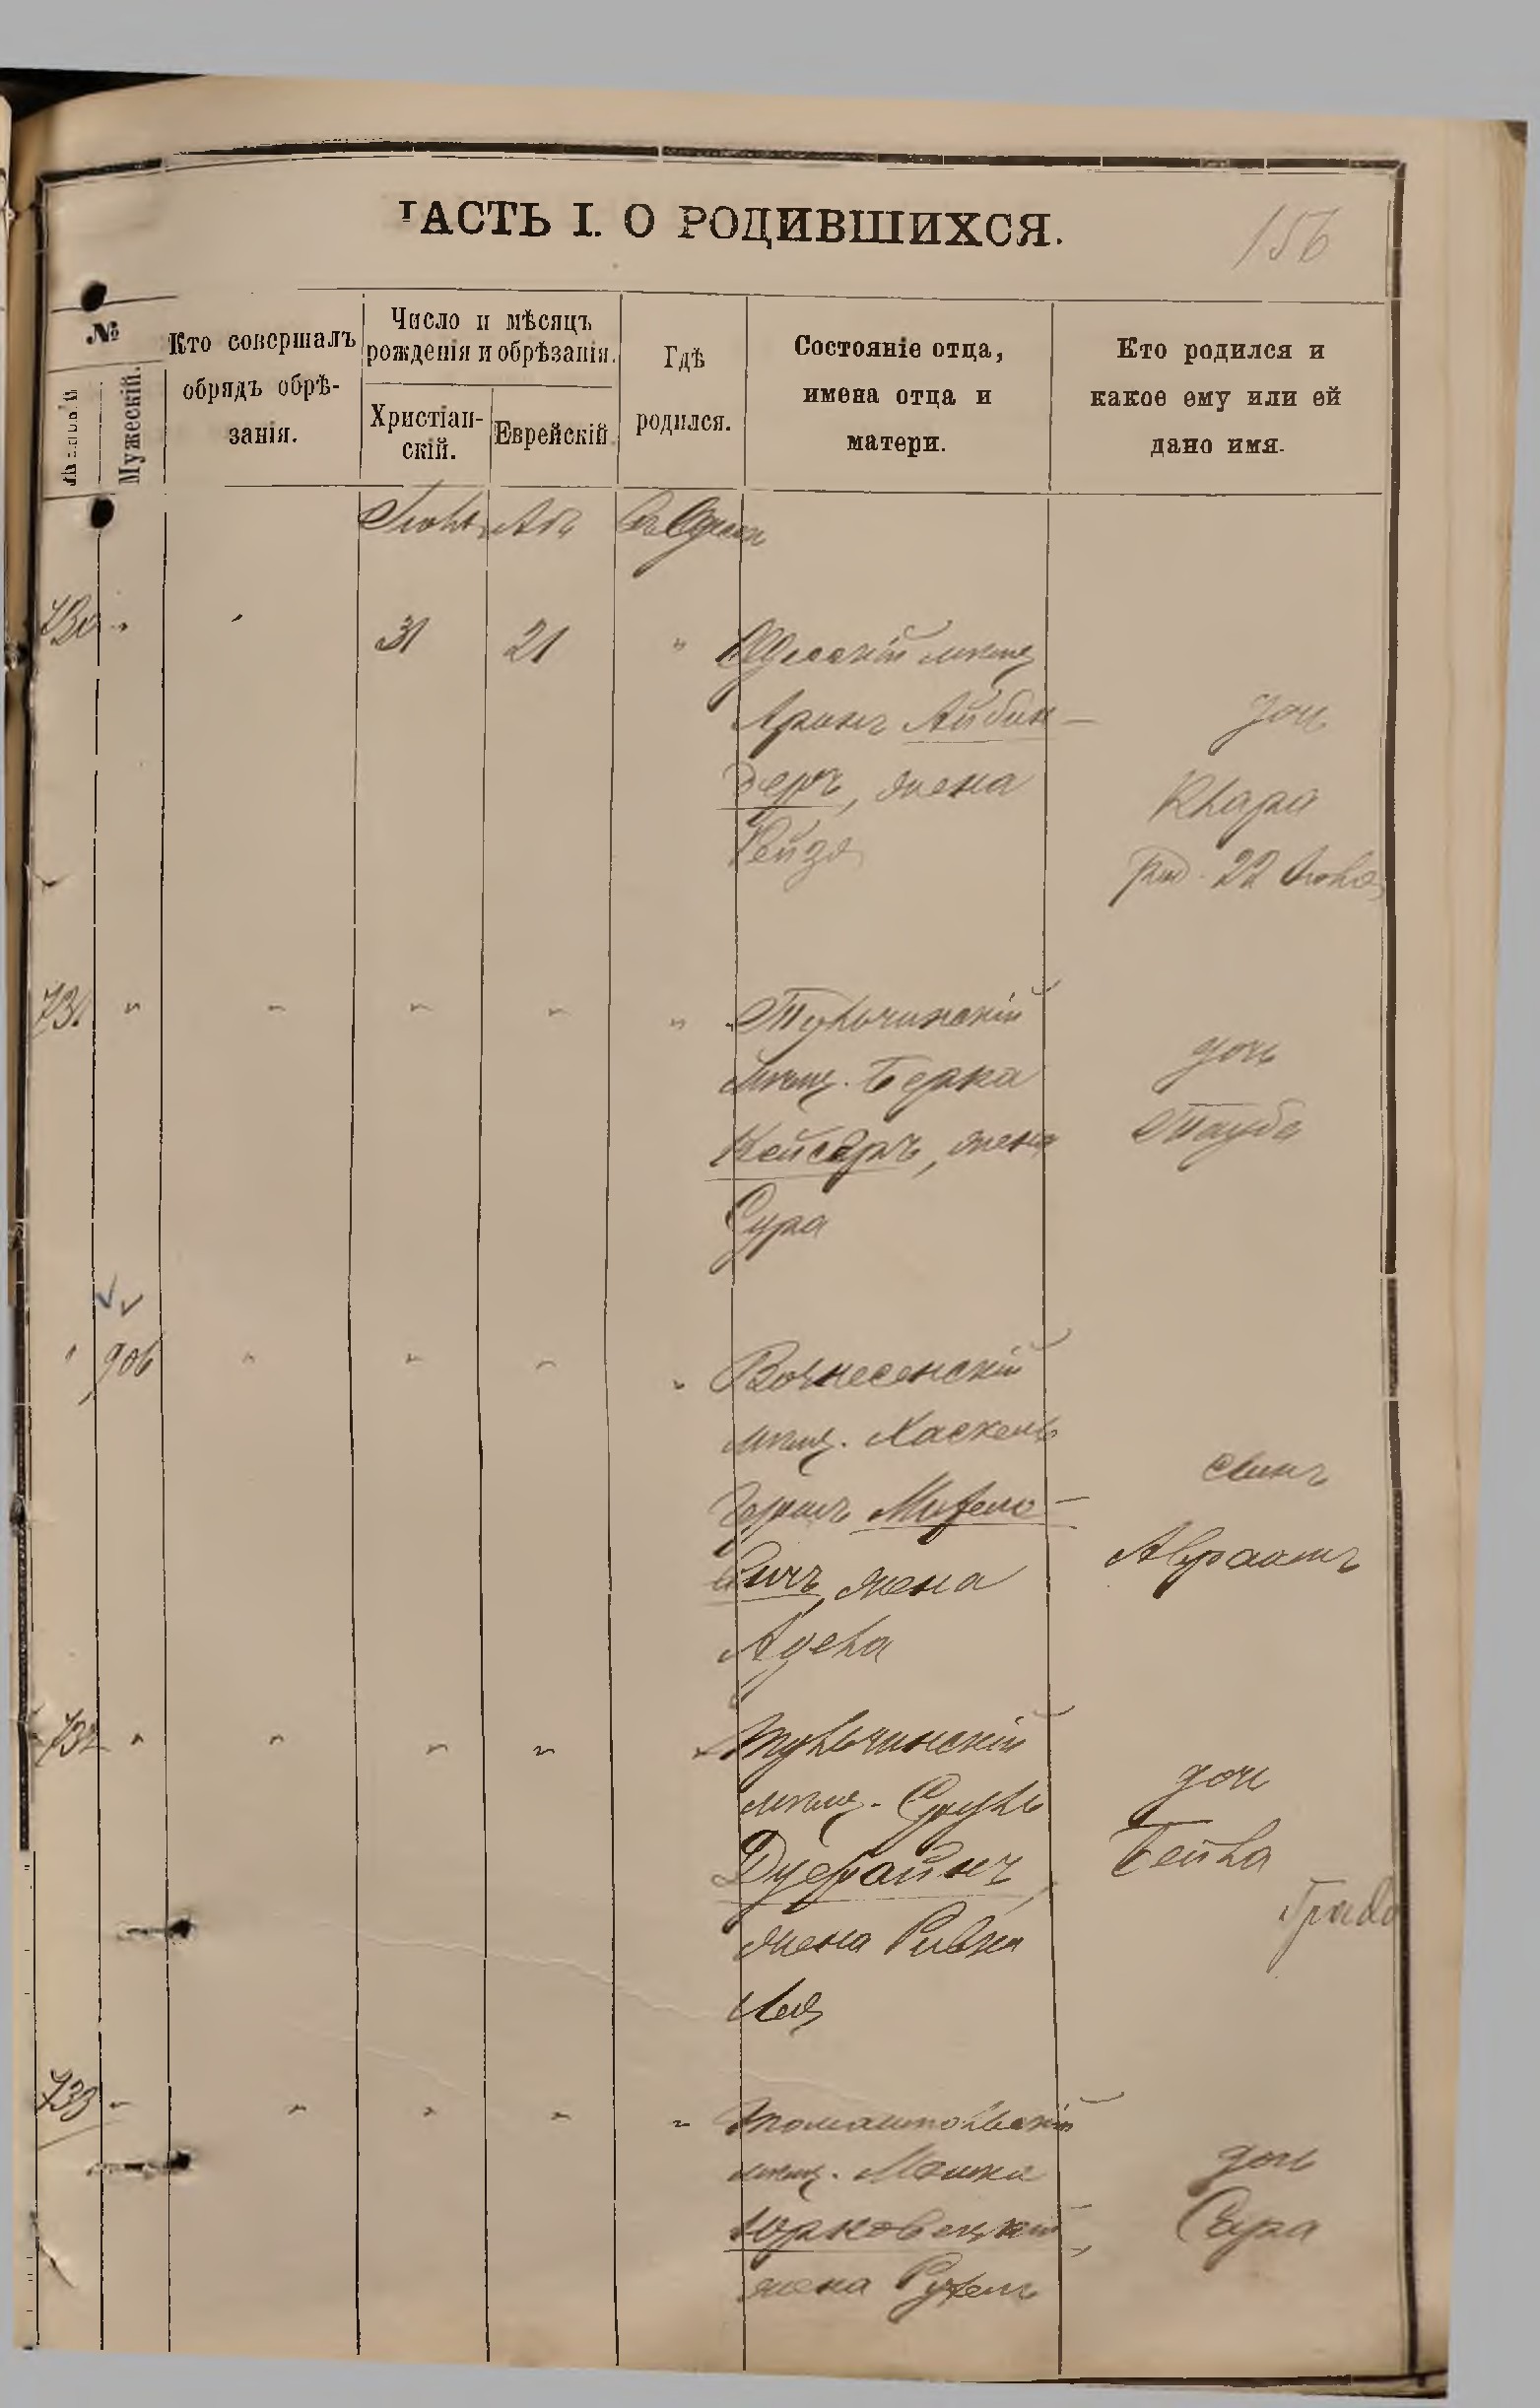 ЧАСТЬ I. О РОДИВШИХСЯ.
156
№
Женскій
Мужескій.
Кто совершалъ
обрядъ обрѣ-
занія.
Число и мѣсяцъ
рожденія и обрѣзанія.
Христіан-
скій.
Еврейскій
Гдѣ
родился.
Состояніе отца,
имена отца и
матери.
Кто родился и
какое ему или ей
дано имя.
Іюль Авъ Въ Одессѣ
730 " 31 21 " Одесскій мѣщ.
Аронъ Айбин-
деръ, жена
Рейзя
дочь
Клара
род. 22 Іюля
731 " " " " " Тульчинскій
мѣщ. Берка
Кейсеръ, жена
Сура
дочь
Тауба
" 906 " " " " Вознесенскій
мѣщ. Хаскель
Мифело-
вичъ, жена
Адель
сынъ
Авраамъ
732 " " " " " Тульчинскій
мѣщ. Сруль
жена Ривка
Лея
дочь
Бейла
733 " " " " " Томашпольскій
мѣщ. Мошка
Юрковецкій,
жена Рухель
дочь
Сура